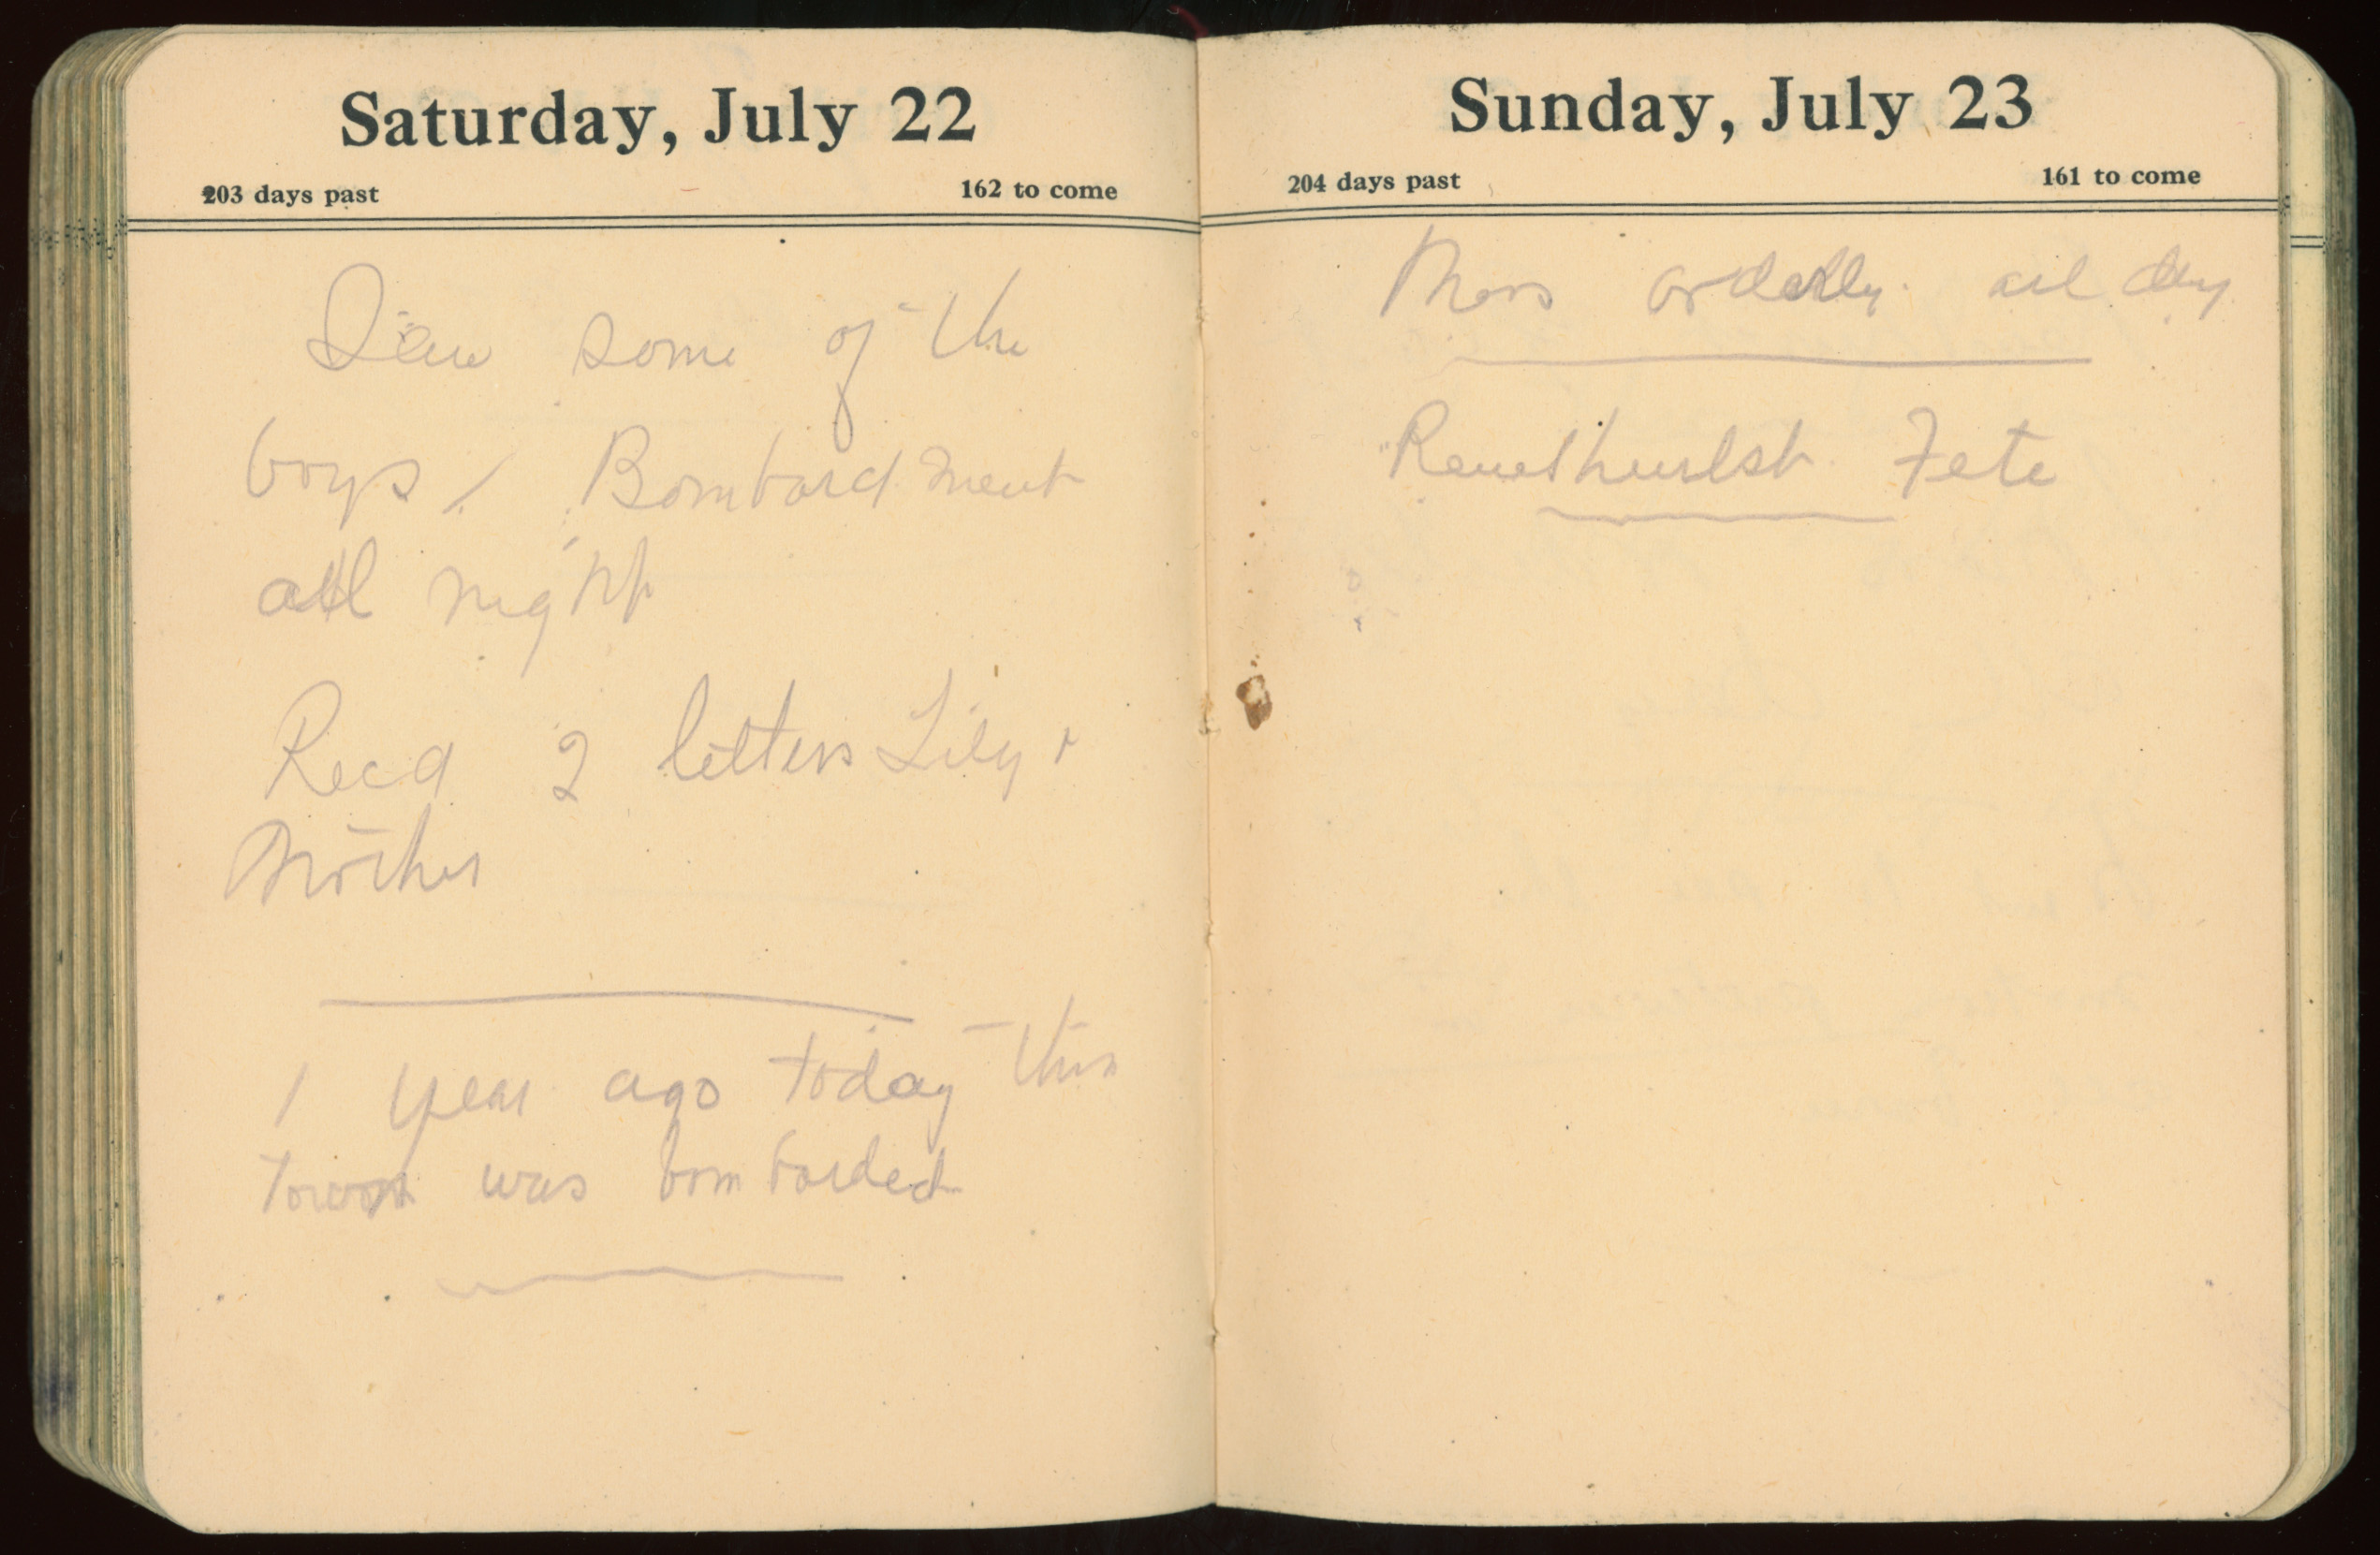 Saturday, July 22
203 days past 162 to come
Saw some of the
boys / Bombardment
all night
Recd 2 letters Lily +
Mother
1 year ago today this
Town was bombarded
Sunday, July 23
204 days past 161 to come
Mess orderly all day
Fete